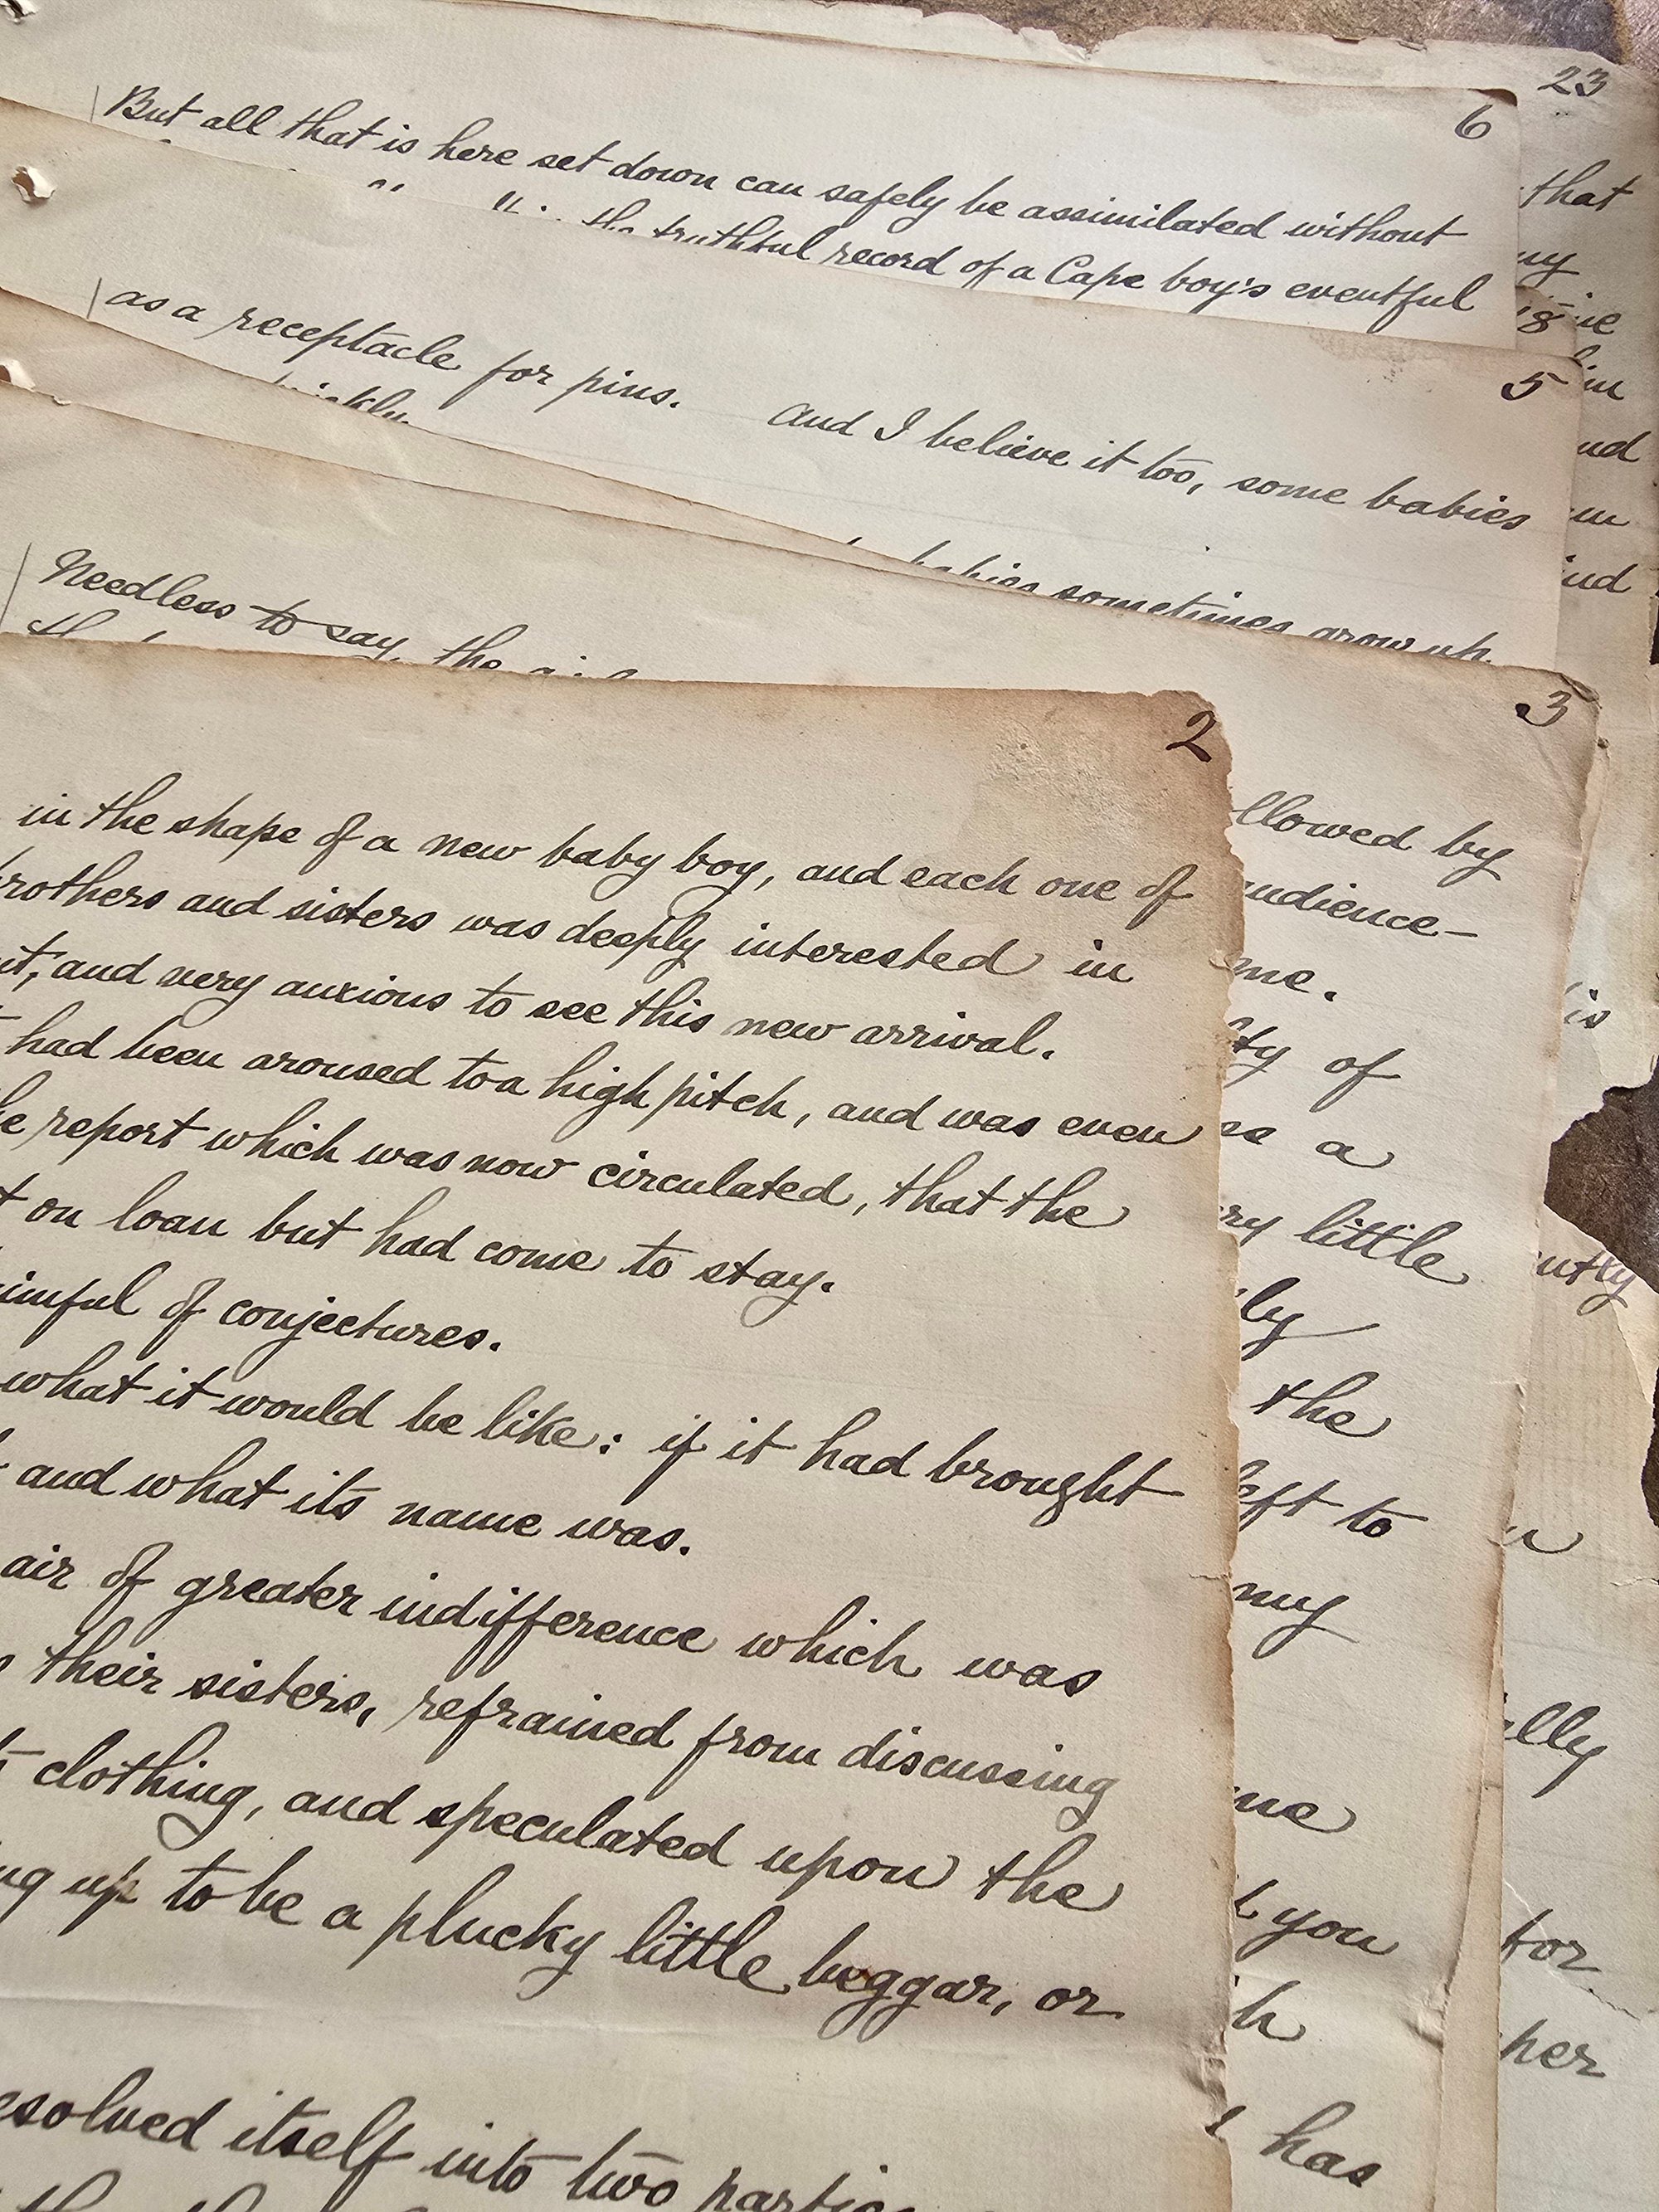 23
6
But all that is here set down can safely be assimilated without
the truthful record of a Cape boy's eventful
that
5
as a receptacle for pins. And I believe it too, some babies
babies sometimes grow up
3
Needless to say, the
2
in the shape of a new baby boy, and each one of
brothers and sisters was deeply interested in
and very anxious to see this new arrival.
had been aroused to a high pitch, and was even
report which was now circulated, that the
on loan but had come to stay.
of conjectures.
what it would be like: if it had brought
and what its name was.
air of greater indifference which was
their sisters, refrained from discussing
clothing, and speculated upon the
up to be a plucky little beggar, or
itself into two
by
audience—
me.
of
a
little
the
to
my
you
has
is
for
her